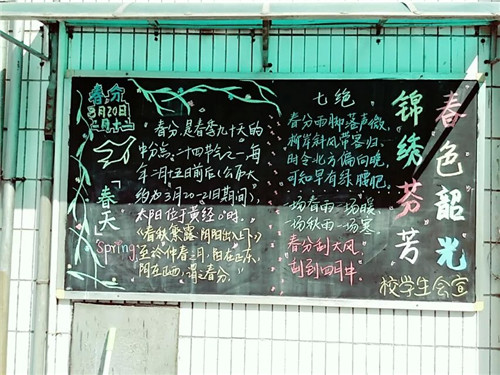 春分
3月20日
二月十二
「春天」
spring
春分,是春季九十天的
中分点,二十四节气之一,每
年二月十五日前后(公历大
约为3月20-21日期间)
太阳位于黄经0°时.
《春秋繁露·阴阳出入上下》
至於仲春之月,阳在正东,
阴在正西,谓之春分。
七绝
春分雨脚落声微,
柳岸斜风带客归,
时令北方偏向晚,
可知早有绿腰肥。
一场春雨一场暖
一场秋雨一场寒
春分刮大风,
刮到四月中
春色韶光
锦绣芬芳
校学生会宣